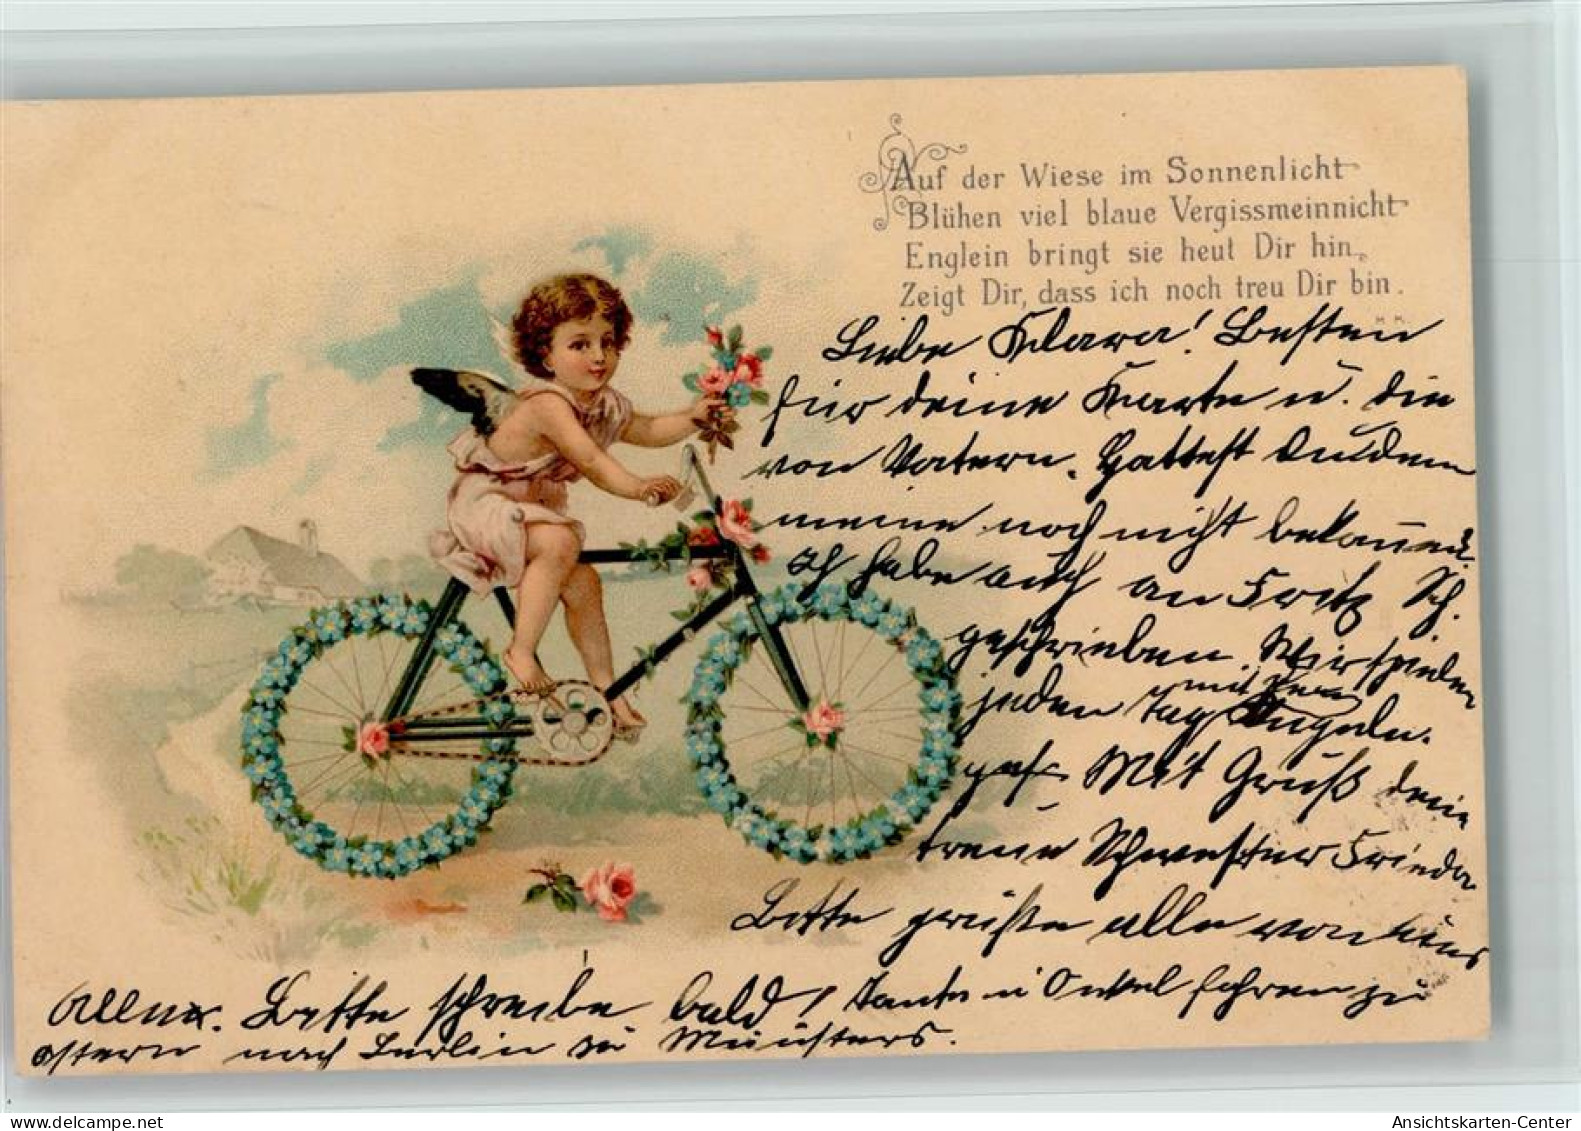 Auf der Wiese im Sonnenlicht
Blühen viel blaue Vergissmeinnicht
Englein bringt sie heut Dir hin,
Zeigt Dir, dass ich noch treu Dir bin.
Liebe Klara! Besten
für deine Karte u. die
von Vatern. Hattest Du denn
meine noch nicht bekommen?
Ich habe auch an Fritz Sch.
geschrieben. Wir spielen
jeden Tag mit Kugeln.
Mit Gruß dein
treue Schwester Frieda
Bitte grüße alle von uns
Allen. Bitte schreibe bald! Tante u Onkel fahren zu
Ostern nach Berlin zu Münsters.
delcampe.net
Ansichtskarten-Center